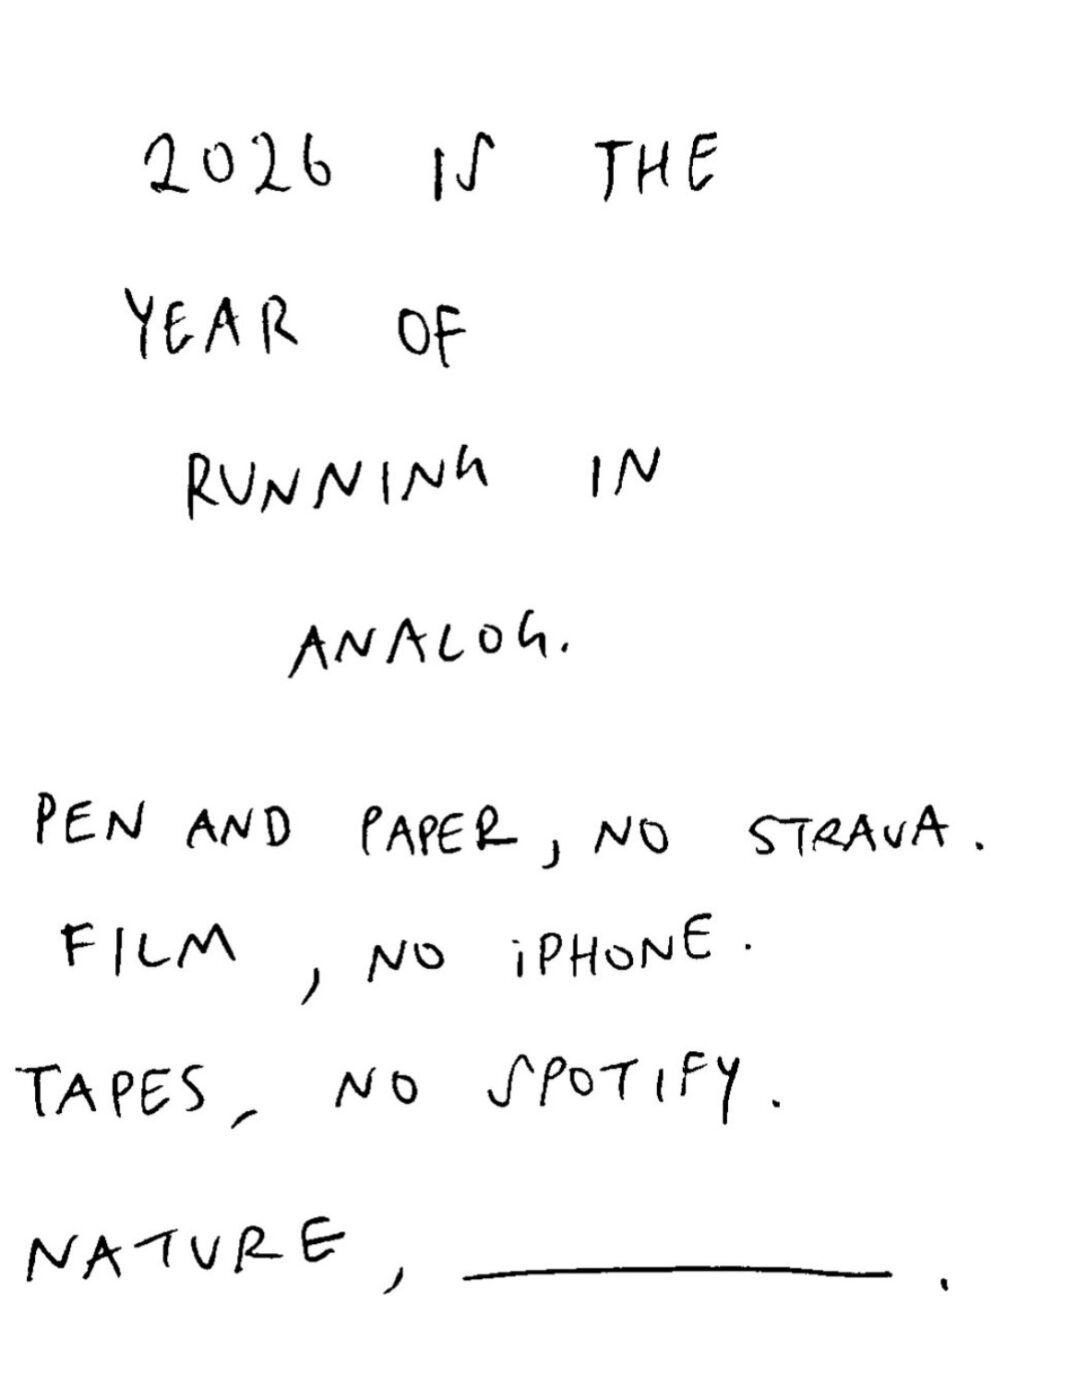 2026 IS THE
YEAR OF
RUNNING IN
ANALOG.
PEN AND PAPER, NO STRAVA.
FILM, NO iPHONE.
TAPES, NO SPOTIFY.
NATURE, ________.